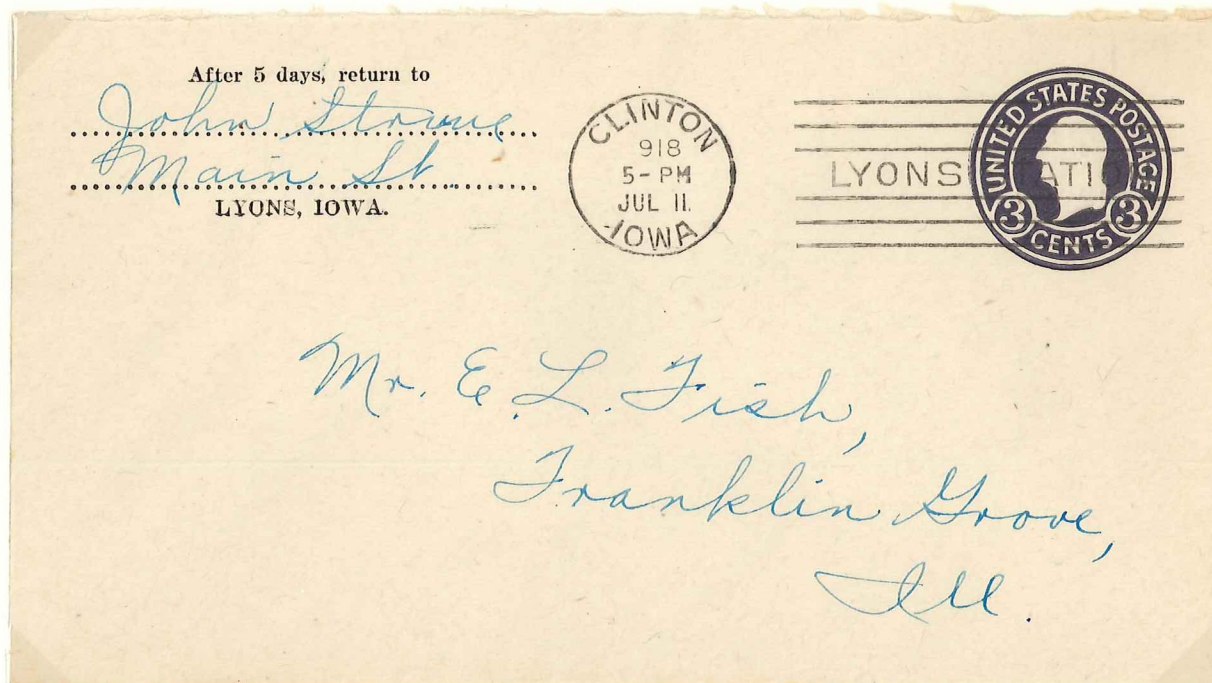 After 5 days, return to
John Stowe
Main St.
LYONS, IOWA.
CLINTON
918
5-PM
JUL 11
IOWA
LYONS STATION
UNITED STATES POSTAGE
3 CENTS 3
Mr. E. L. Fish,
Franklin Grove,
Ill.